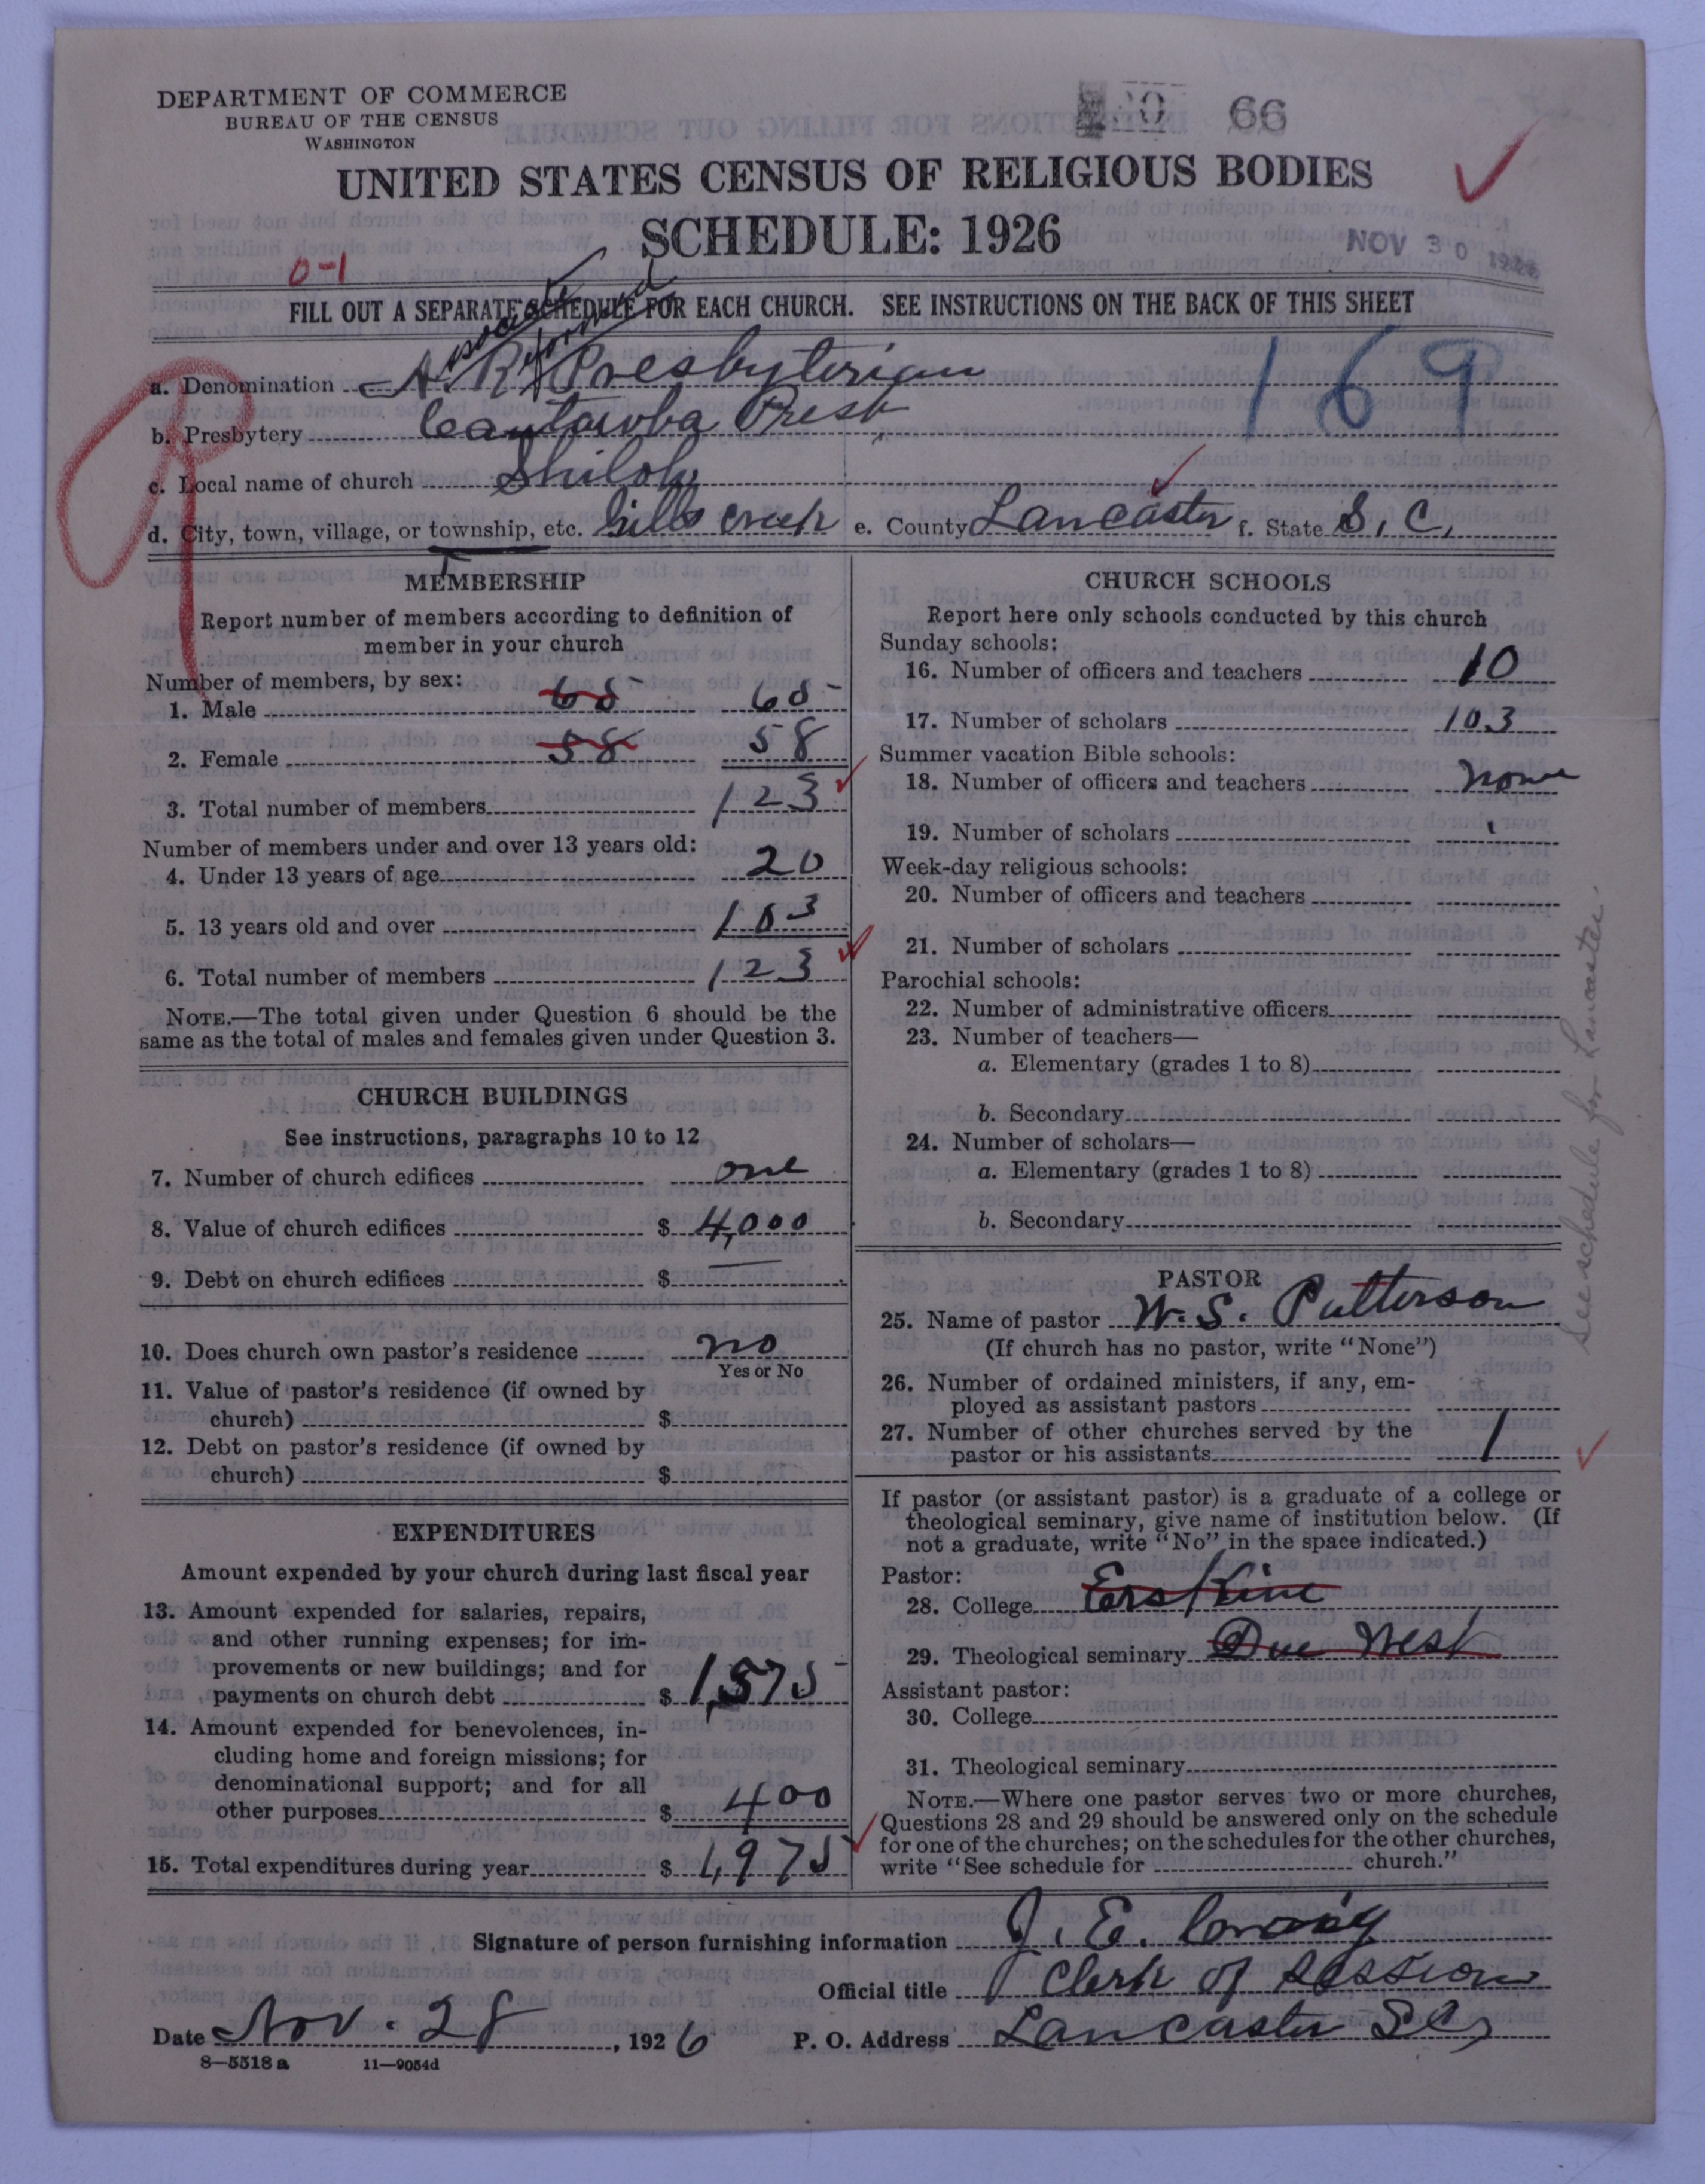 DEPARTMENT OF COMMERCE
BUREAU OF THE CENSUS
WASHINGTON
66
UNITED STATES CENSUS OF RELIGIOUS BODIES
SCHEDULE: 1926
NOV 30 1926
0-1
FILL OUT A SEPARATE SCHEDULE FOR EACH CHURCH. SEE INSTRUCTIONS ON THE BACK OF THIS SHEET
Associate Reformed
a. Denomination A. R. Presbyterian
169
b. Presbytery Cantawba Presb
c. Local name of church Shiloh
d. City, town, village, or township, etc. Gills Creek e. County Lancaster f. State S. C.
MEMBERSHIP
Report number of members according to definition of
member in your church
Number of members, by sex:
1. Male 65 65
2. Female 58 58
3. Total number of members 123
Number of members under and over 13 years old:
4. Under 13 years of age 20
5. 13 years old and over 103
6. Total number of members 123
NOTE.—The total given under Question 6 should be the
same as the total of males and females given under Question 3.
CHURCH BUILDINGS
See instructions, paragraphs 10 to 12
7. Number of church edifices one
8. Value of church edifices $ 4,000
9. Debt on church edifices $ —
10. Does church own pastor's residence no
Yes or No
11. Value of pastor's residence (if owned by
church) $
12. Debt on pastor's residence (if owned by
church) $
EXPENDITURES
Amount expended by your church during last fiscal year
13. Amount expended for salaries, repairs,
and other running expenses; for im-
provements or new buildings; and for
payments on church debt $ 1,575
14. Amount expended for benevolences, in-
cluding home and foreign missions; for
denominational support; and for all
other purposes $ 400
15. Total expenditures during year $ 1,975
CHURCH SCHOOLS
Report here only schools conducted by this church
Sunday schools:
16. Number of officers and teachers 10
17. Number of scholars 103
Summer vacation Bible schools:
18. Number of officers and teachers none
19. Number of scholars
Week-day religious schools:
20. Number of officers and teachers
21. Number of scholars
Parochial schools:
22. Number of administrative officers
23. Number of teachers—
a. Elementary (grades 1 to 8)
b. Secondary
24. Number of scholars—
a. Elementary (grades 1 to 8)
b. Secondary
PASTOR
25. Name of pastor W. S. Patterson
(If church has no pastor, write "None")
26. Number of ordained ministers, if any, em-
ployed as assistant pastors
27. Number of other churches served by the
pastor or his assistants 1
If pastor (or assistant pastor) is a graduate of a college or
theological seminary, give name of institution below. (If
not a graduate, write "No" in the space indicated.)
Pastor:
28. College Erskine
29. Theological seminary Due West
Assistant pastor:
30. College
31. Theological seminary
NOTE.—Where one pastor serves two or more churches,
Questions 28 and 29 should be answered only on the schedule
for one of the churches; on the schedules for the other churches,
write "See schedule for church."
See schedule for Lancaster.
Signature of person furnishing information J. E. Craig
Official title Clerk of Session
Date Nov. 28, 1926 P. O. Address Lancaster S C
8—5518 a 11—9054d